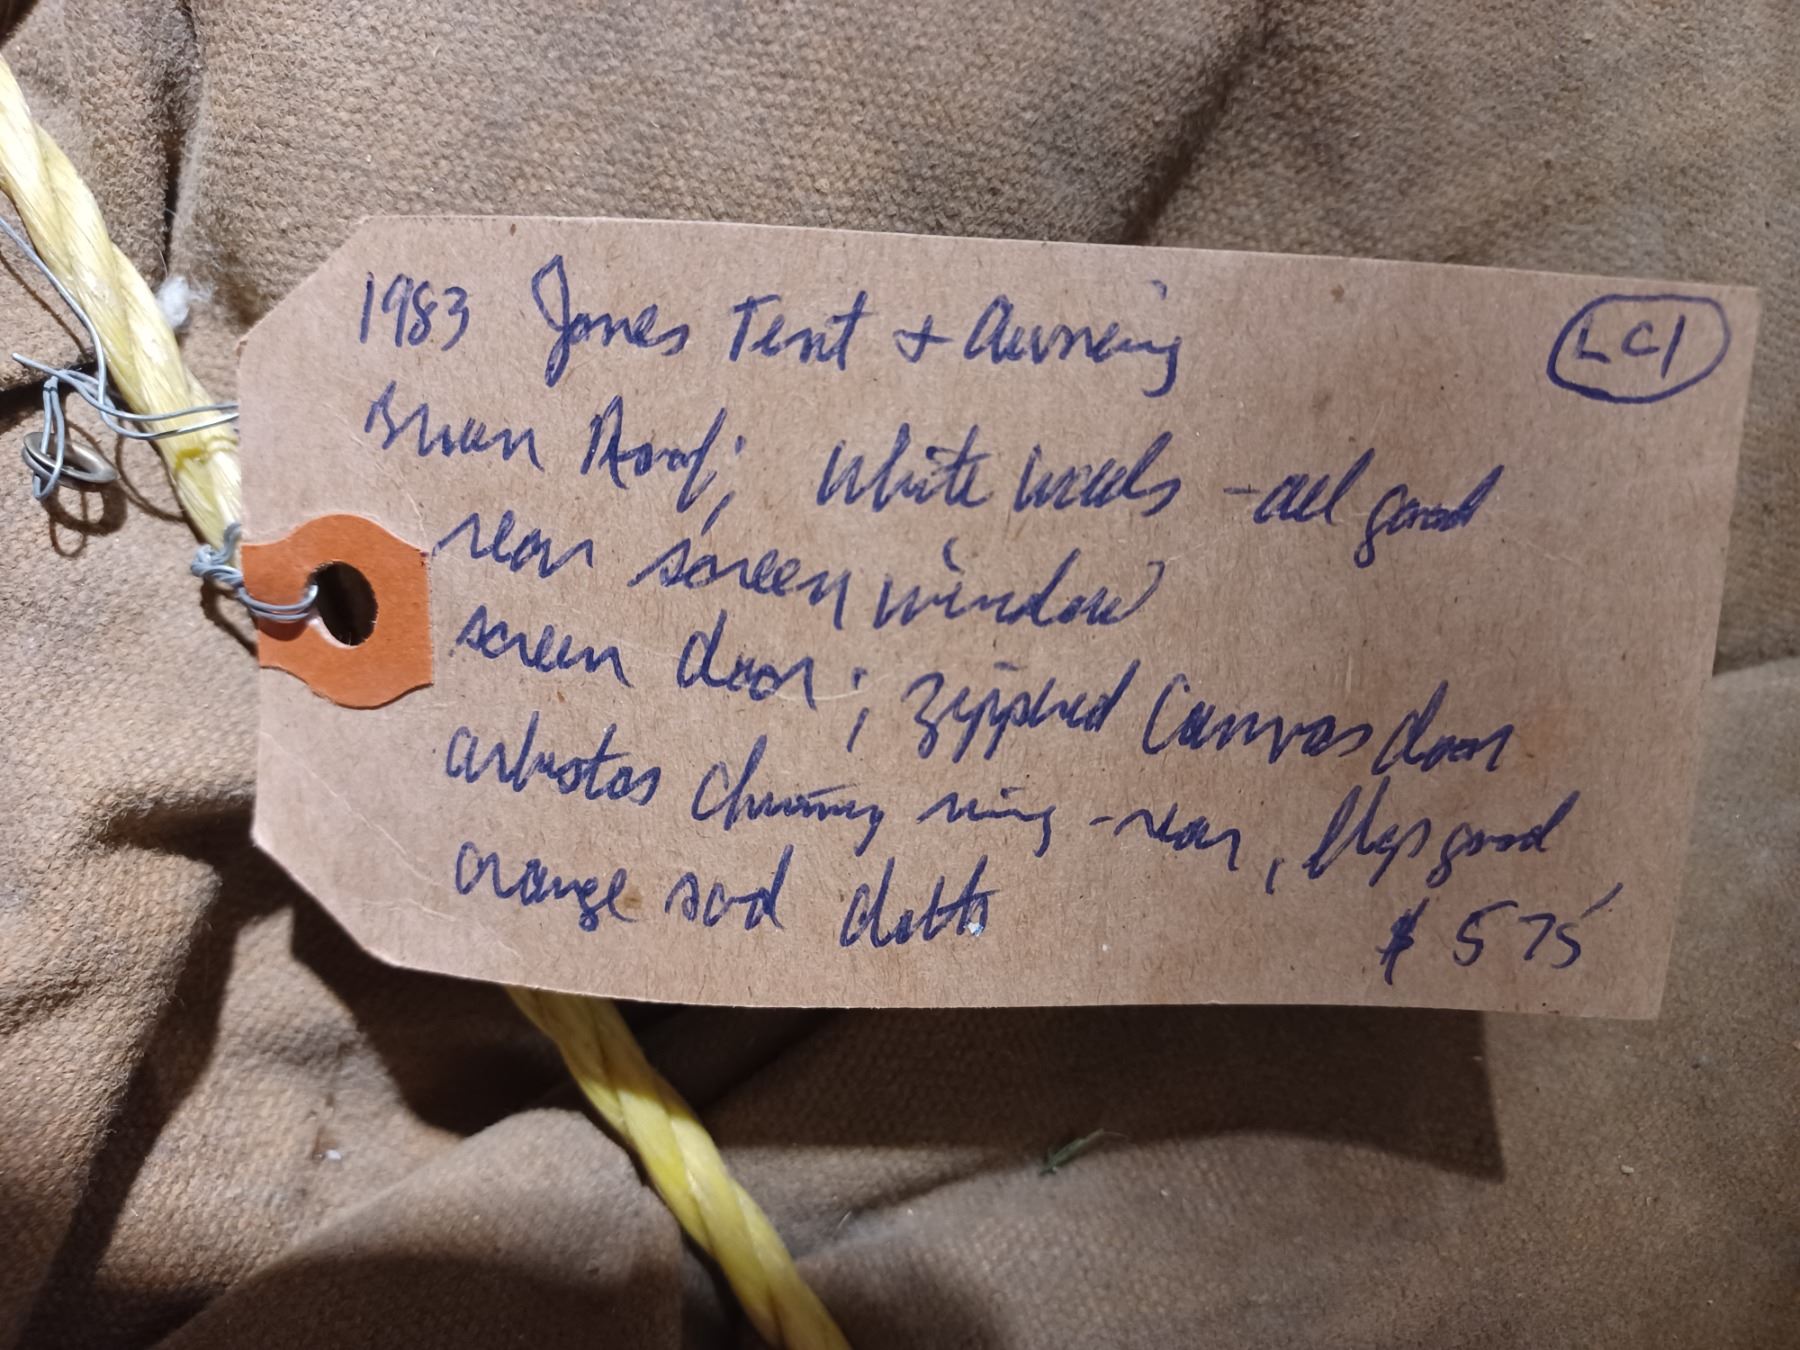 1983 Jones Tent + Awning
LC1
Brown Roof; white walls - all good
rear screen window
screen door; zippered canvas door
asbestos chimney ring - rear, flaps good
orange sod cloth
$575